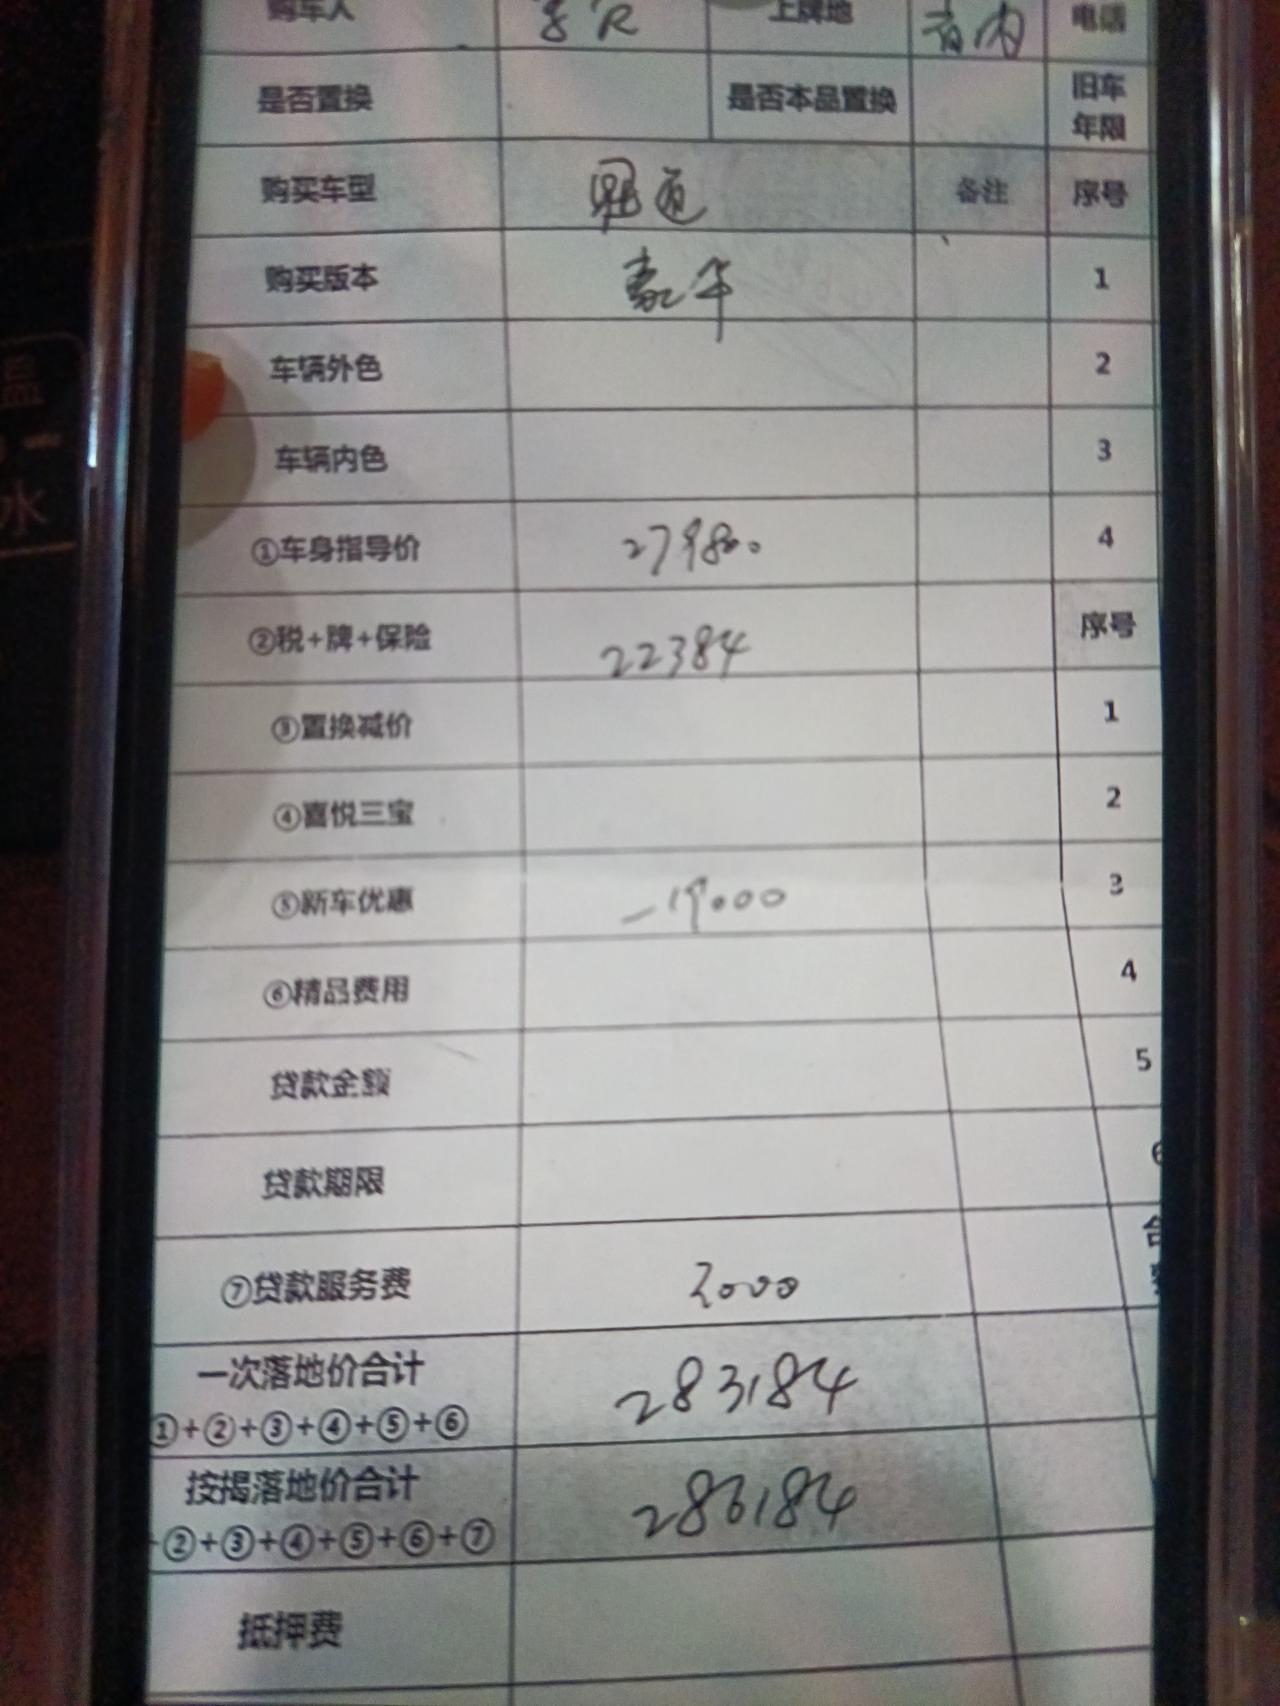 购车人 上牌地 省内 电话
是否置换 是否本品置换 旧车年限
购买车型 备注 序号
购买版本 豪华 1
车辆外色 2
车辆内色 3
①车身指导价 279800 4
②税+牌+保险 22384 序号
③置换减价 1
④喜悦三宝 2
⑤新车优惠 -19000 3
⑥精品费用 4
贷款金额 5
贷款期限 6
⑦贷款服务费 3000
一次落地价合计 283184
①+②+③+④+⑤+⑥
按揭落地价合计 286184
+②+③+④+⑤+⑥+⑦
抵押费